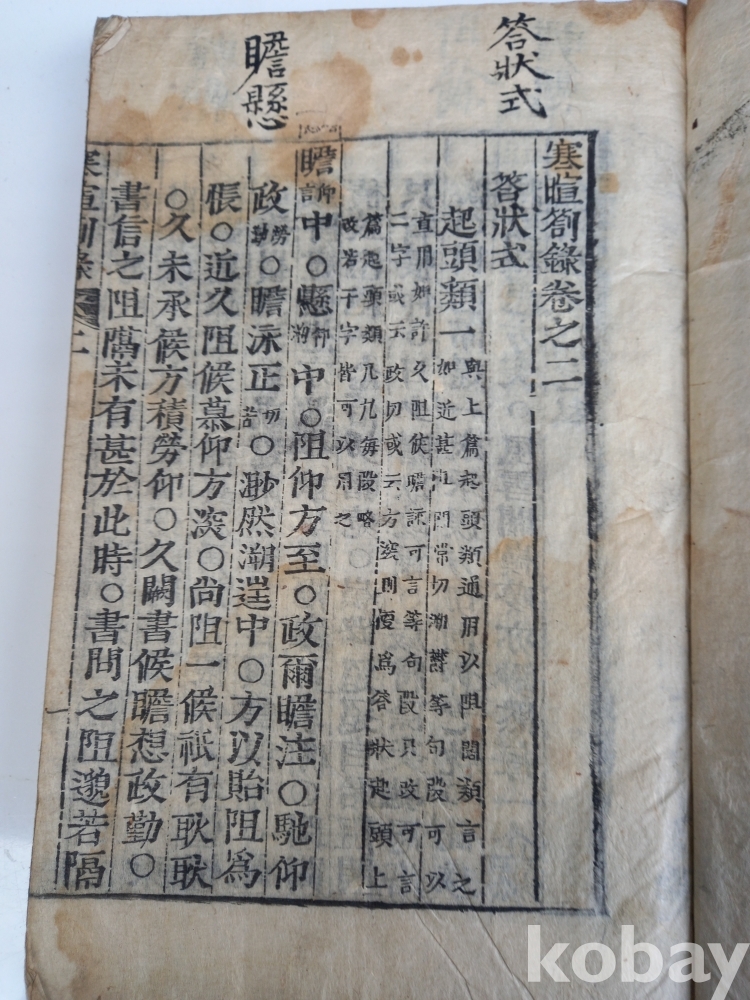 答狀式
瞻懸
寒暄劄錄卷之二
答狀式
起頭類一
與上篇起頭類通用以阻閡類言之
如近甚阻問常切溯鬱等句段可以
直用如許久阻徒瞻詠可言等句段只改可言
二字或云政切或云方深則便爲答狀起頭上
篇起頭類凡九每段略
改若干字皆可以用之
瞻仰言中○懸仰䄂中○阻仰方至○政爾瞻注○馳仰
政勞勤○瞻泳正切苦○渺然溯逞中○方以貽阻爲
悵○近久阻候慕仰方深○尚阻一候祇有耿耿
○久未承候方積勞仰○久闕書候瞻想政勤○
書信之阻闊未有甚於此時○書問之阻邈若隔
寒暄劄錄 二
kobay